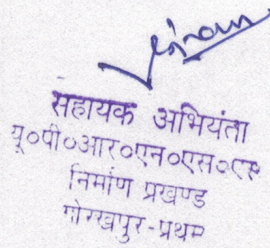 सहायक अभियंता
यू०पी०आर०एन०एस०एस
निर्माण प्रखण्ड
गोरखपुर-प्रथम